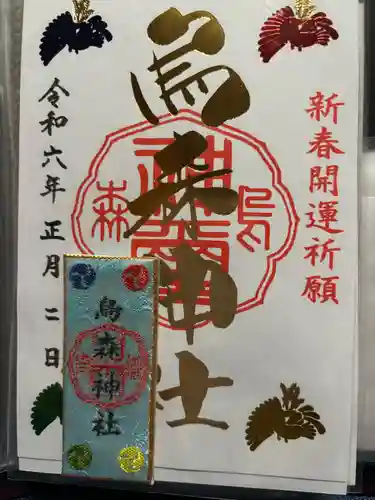 新春開運祈願
烏森神社
令和六年正月二日
烏森
烏森神社